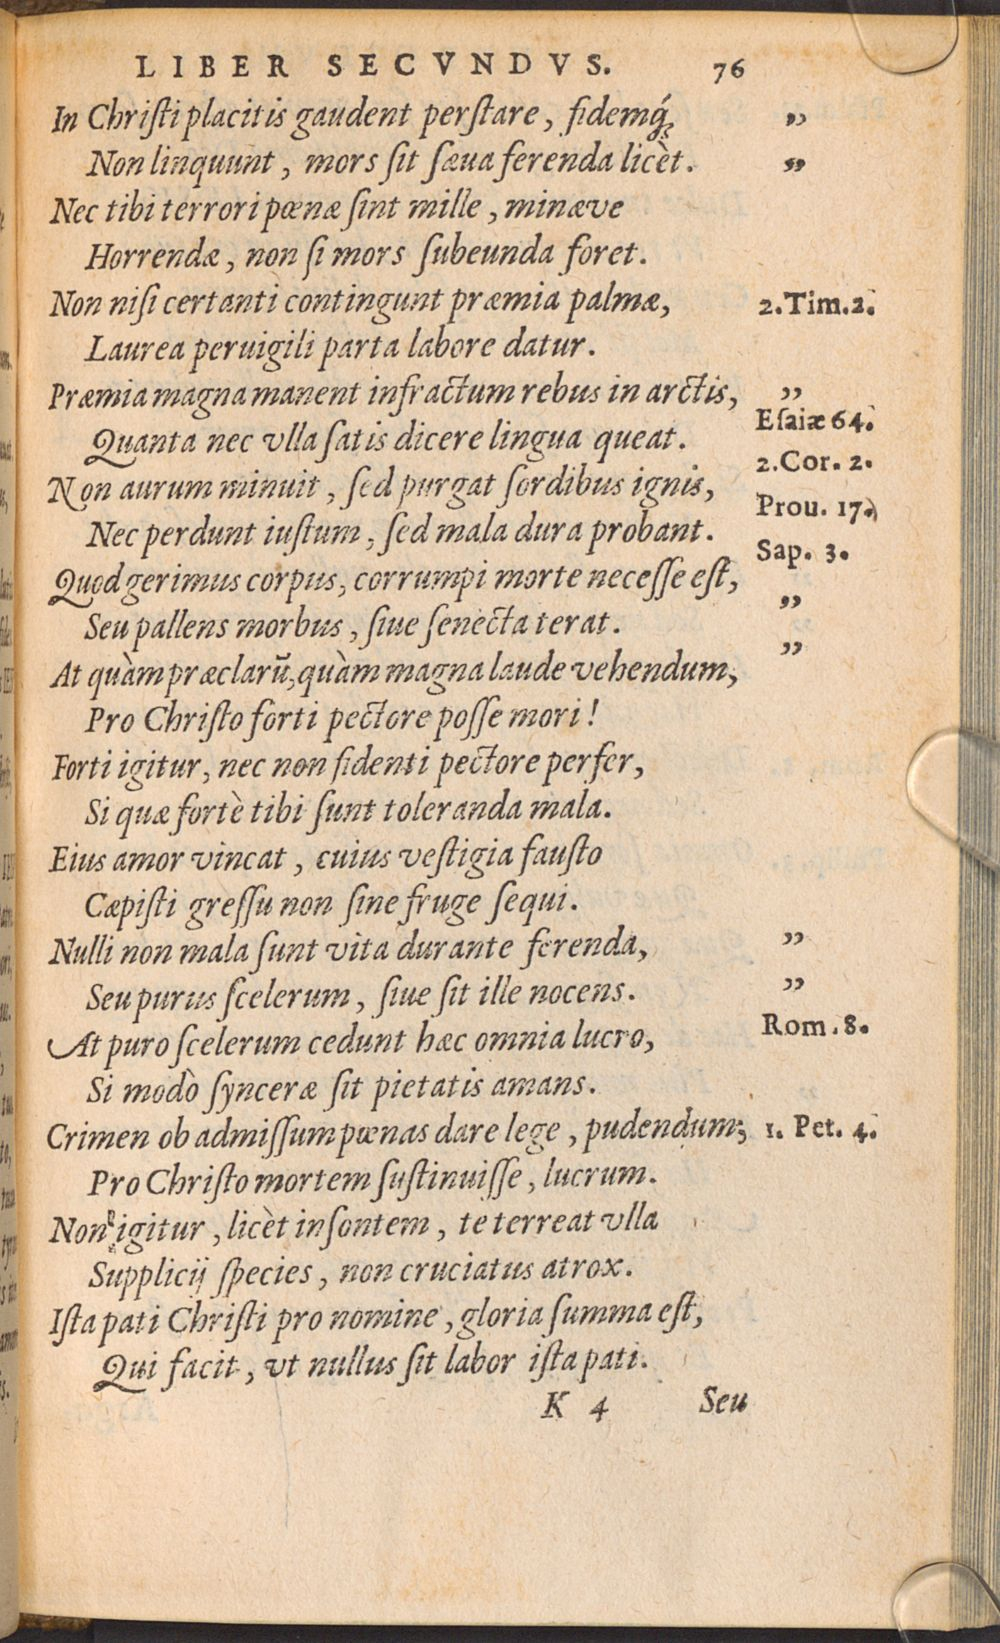 LIBER SECVNDVS. 76
In Christi placitis gaudent perstare, fidemq́; „
Non linquunt, mors sit sæua ferenda licèt. „
Nec tibi terrori pœnæ sint mille, minæve
Horrendæ, non si mors subeunda foret.
Non nisi certanti contingunt præmia palmæ, 2.Tim.2.
Laurea peruigili parta labore datur.
Præmia magna manent infractum rebus in arctis, „
Esaiæ 64.
Quanta nec vlla satis dicere lingua queat.
2.Cor. 2.
Non aurum minuit, sed purgat sordibus ignis,
Prou. 17.
Nec perdunt iustum, sed mala dura probant.
Sap. 3.
Quod gerimus corpus, corrumpi morte necesse est,
„
Seu pallens morbus, siue senecta terat.
„
At quàm præclarū, quàm magna laude vehendum,
Pro Christo forti pectore posse mori!
Forti igitur, nec non fidenti pectore perfer,
Si quæ fortè tibi sunt toleranda mala.
Eius amor vincat, cuius vestigia fausto
Cæpisti gressu non sine fruge sequi.
Nulli non mala sunt vita durante ferenda, „
Seu purus scelerum, siue sit ille nocens. „
At puro scelerum cedunt hæc omnia lucro, Rom.8.
Si modò synceræ sit pietatis amans.
Crimen ob admissum pœnas dare lege, pudendum; 1. Pet. 4.
Pro Christo mortem sustinuisse, lucrum.
Non igitur, licèt insontem, te terreat vlla
Supplicij species, non cruciatus atrox.
Ista pati Christi pro nomine, gloria summa est,
Qui facit, vt nullus sit labor ista pati.
K 4 Seu